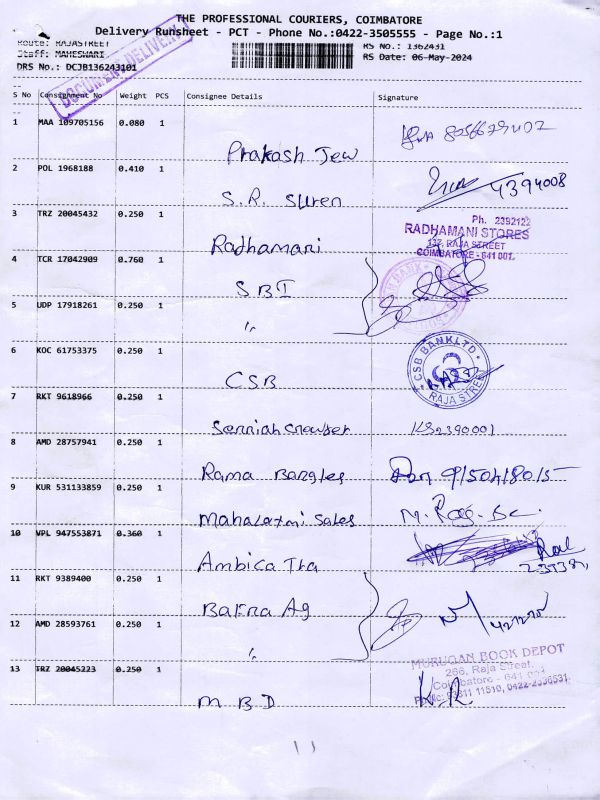 THE PROFESSIONAL COURIERS, COIMBATORE
Delivery Runsheet - PCT - Phone No.:0422-3505555 - Page No.:1
Route: RAJASTREET
RS No.: 1362431
Staff: MAHESHARI
RS Date: 06-May-2024
DRS No.: DCJB136243101
DOCUMENT DELIVERY
S No Consignment No Weight PCS Consignee Details Signature
1 MAA 109705156 0.080 1
Prakash Jew
2 POL 1968188 0.410 1
S.R. Suren 4394008
3 TRZ 20045432 0.250 1
Ph. 2392122
RADHAMANI STORES
137, RAJA STREET
COIMBATORE - 641 001.
Radhamani
4 TCR 17042909 0.760 1
SBI
5 UDP 17918261 0.250 1
"
6 KOC 61753375 0.250 1
CSB BANK LTD
RAJA STREET
CSB
7 RKT 9618966 0.250 1
KS2390001
8 AMD 28757941 0.250 1
Rama Bangles
9 KUR 531133859 0.250 1
Mahalaxmi Sales
10 VPL 947553871 0.360 1
Ambica Tha
11 RKT 9389400 0.250 1
Ag
12 AMD 28593761 0.250 1
"
13 TRZ 20045223 0.250 1
MURUGAN BOOK DEPOT
266, Raja Street,
Coimbatore - 641 001
K.R.
MBD